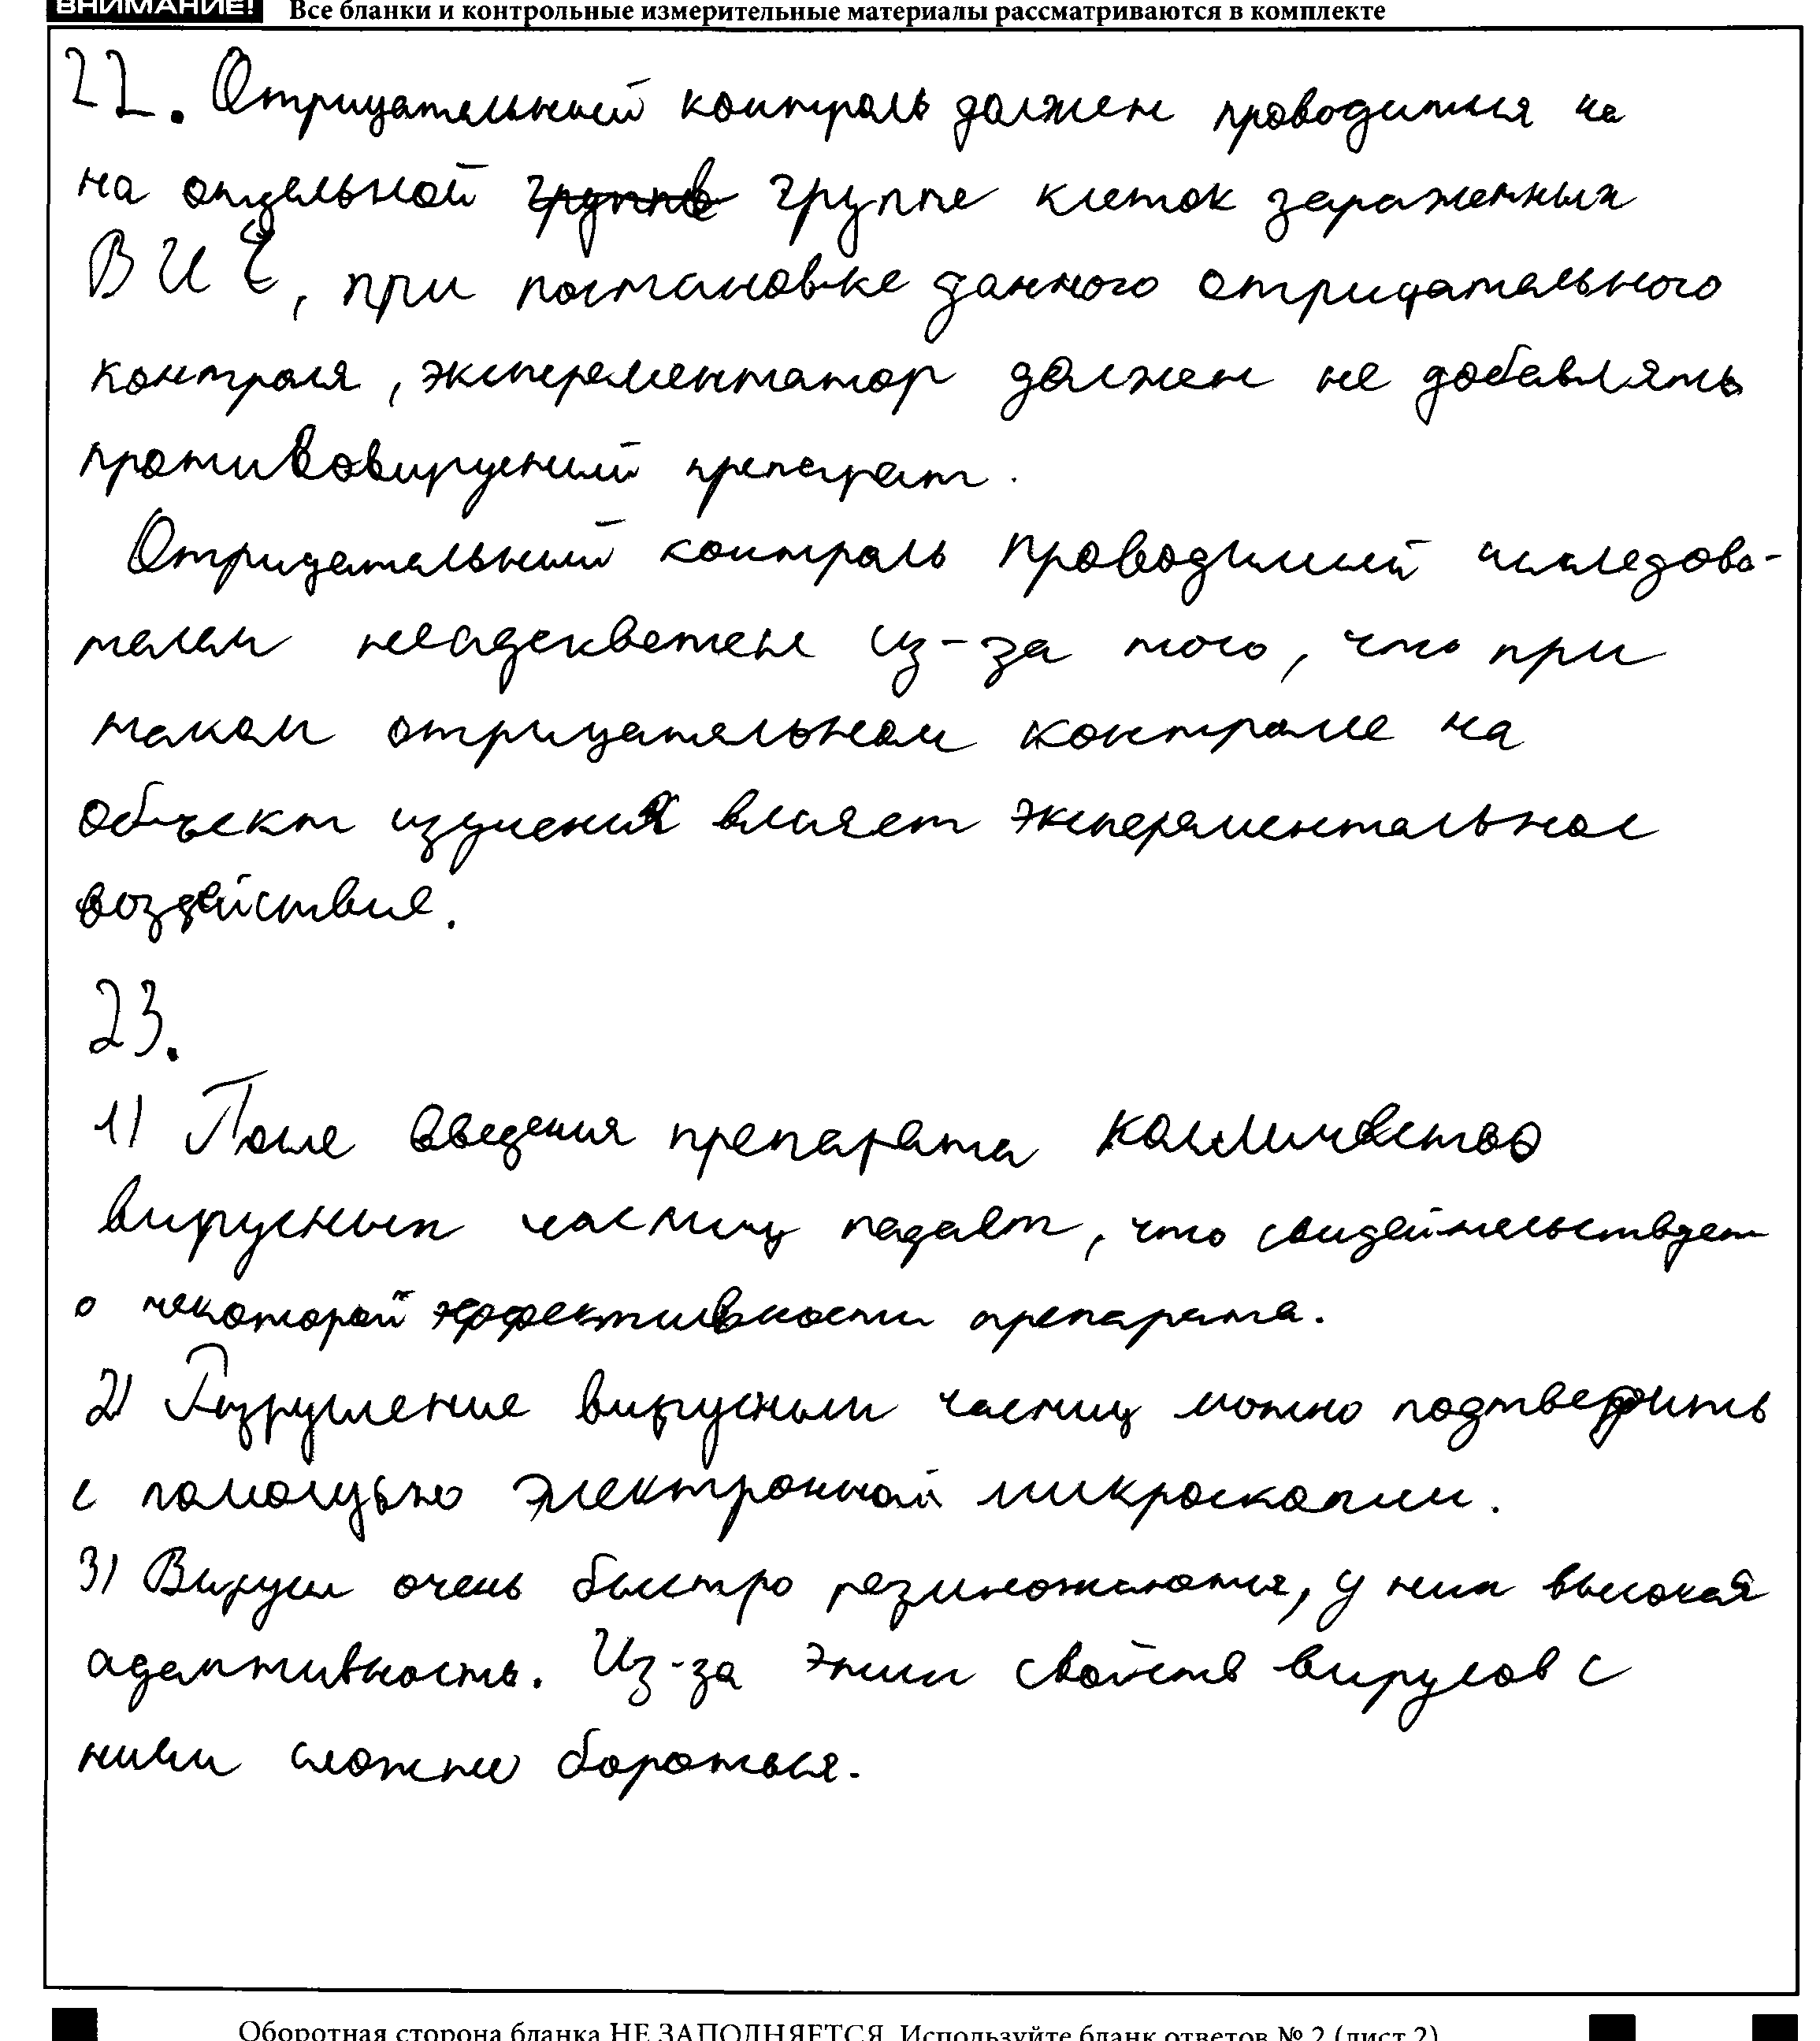 ВНИМАНИЕ! Все бланки и контрольные измерительные материалы рассматриваются в комплекте
22. Отрицательный контроль должен проводится на
на отдельной группе группе клеток зараженных
ВИЧ, при постановке данного отрицательного
контроля, эксперементатор должен не добавлять
противовирусный препарат.
Отрицательный контроль проводимый исследова-
телем неадекватен из-за того, что при
таком отрицательном контроле на
объект изучения влияет эксперементальное
воздействие.
23.
1) После введения препарата колличество
вирусных частиц падает, что свидейтельствует
о некоторой эффективности препарата.
2) Разрушение вирусных частиц можно подтвердить
с помощью электронной микроскопии.
3) Вирусы очень быстро размножаются, у них высокая
адаптивность. Из-за этих свойств вирусов с
ними сложно бороться.
Оборотная сторона бланка НЕ ЗАПОЛНЯЕТСЯ. Используйте бланк ответов № 2 (лист 2)